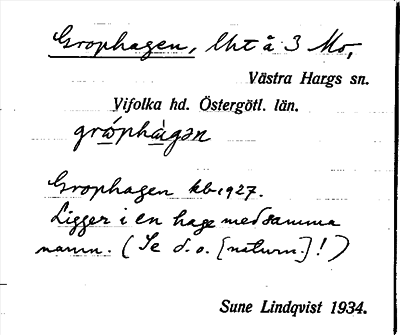 Grophagen, lht å 3 Mo,
Västra Hargs sn.
Vifolka hd. Östergötl. län.
grǿphàgǝn
Grophagen kb 1927.
Ligger i en hage med samma
namn. (Se d. o. [naturn.]!)
Sune Lindqvist 1934.